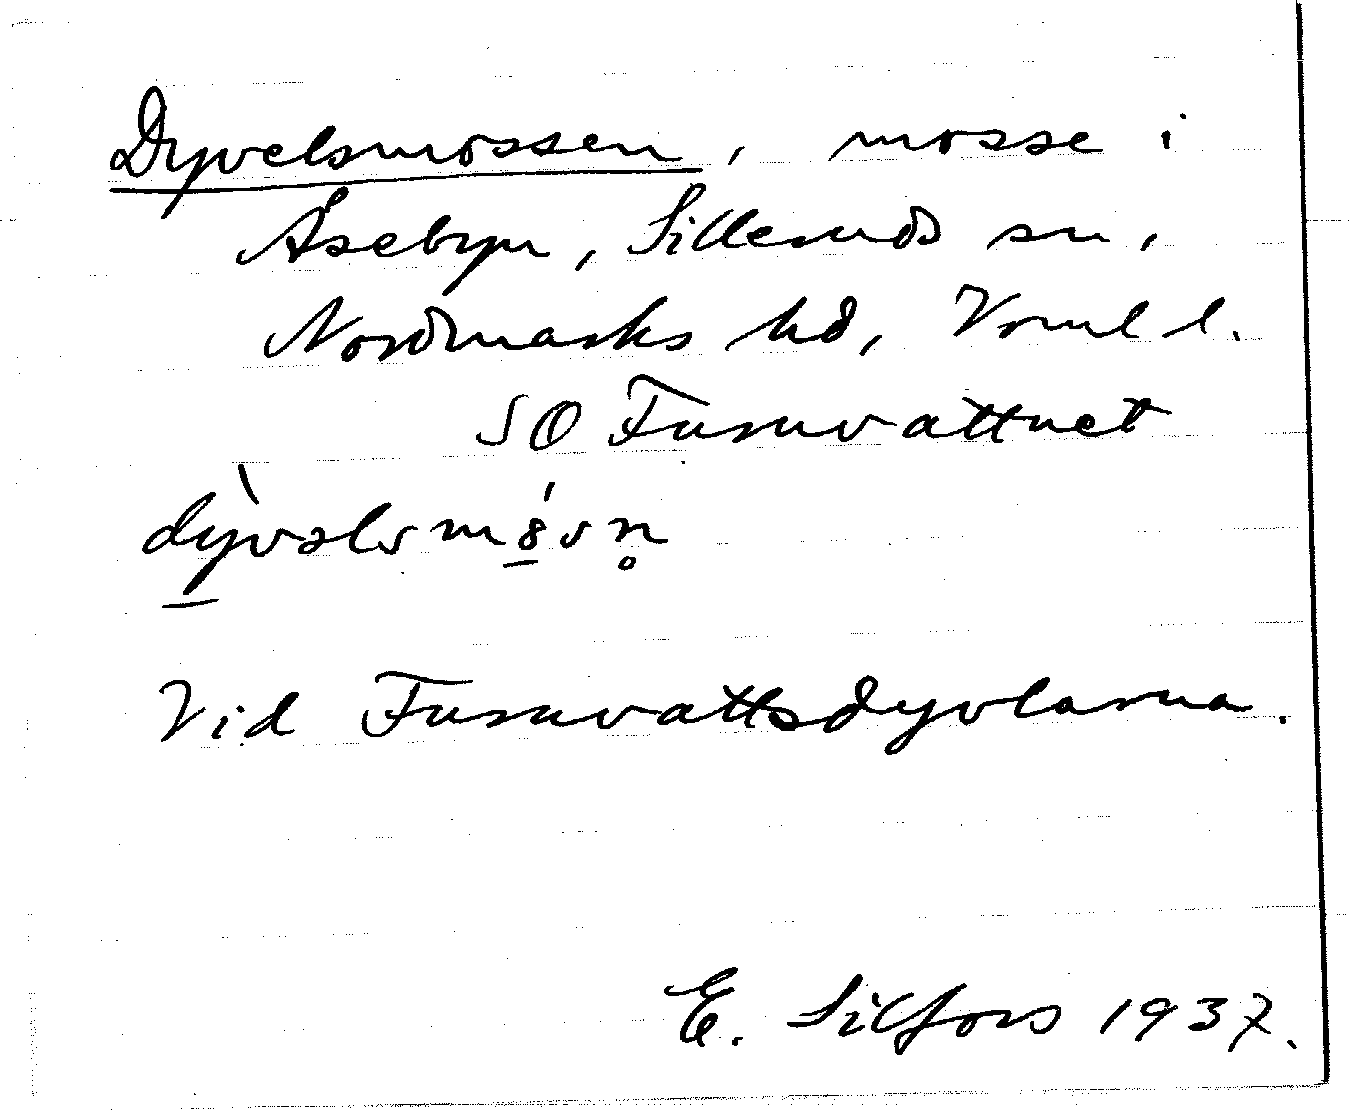 Dyvelsmossen, mosse i
Åsebyn, Silleruds sn,
Nordmarks hd, Verml l.
SO Furuvattnet
dỳvəlsmósn̥
Vid Furuvattsdyvlarna.
E. Silfors 1937.